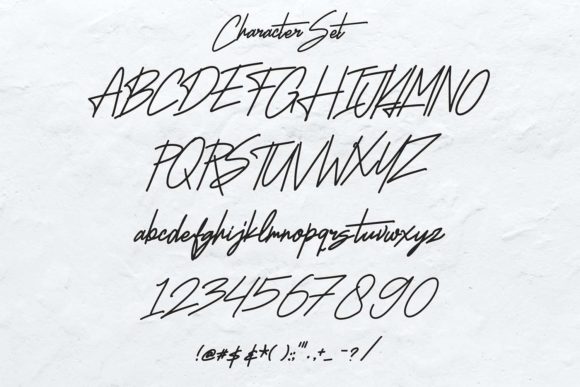 Character Set
ABCDEFGHIJKLMNO
PQRSTUVWXYZ
abcdefghijklmnopqrstuvwxyz
1234567890
!@#$&*( ):;"'.,+_ -?/